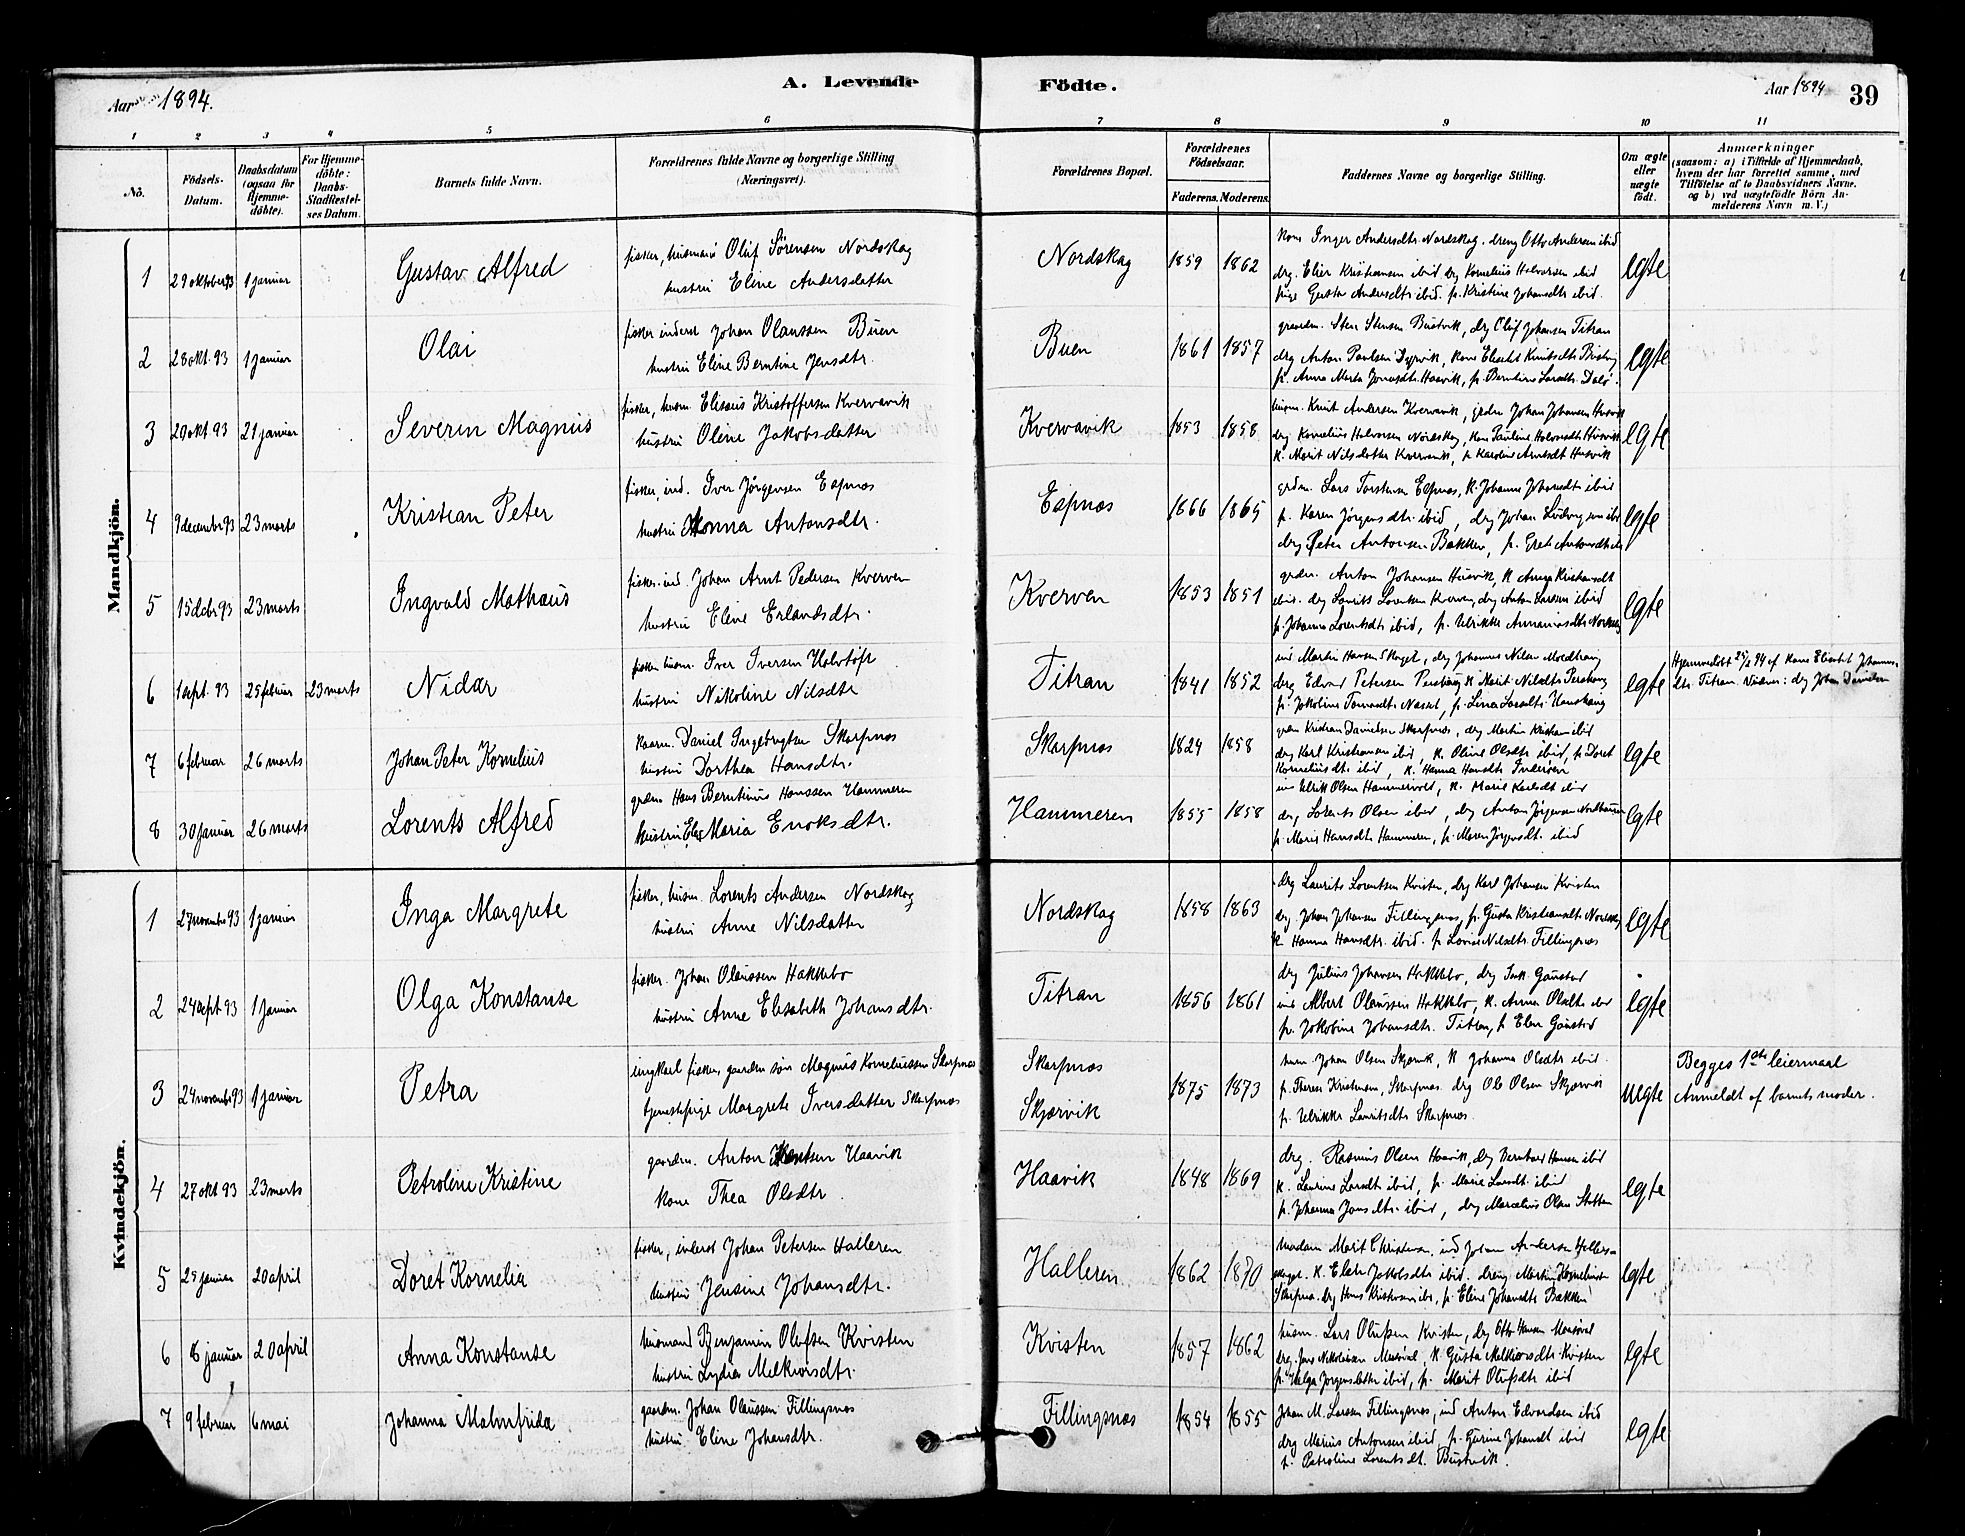 Aar 1894.
A. Levende
Födte.
Aar 1894
39
1 2 3 4 5 6
7 8 9 10 11
No.
Födsels-Datum.
Daabsdatum (ogsaa for Hjemme-döbte).
For Hjemme-döbte: Daabs-Stadfæstel-ses Datum.
Barnets fulde Navn.
Forældrenes fulde Navne og borgerlige Stilling
(Næringsvei).
Forældrenes Bopæl.
Forældrenes Födselsaar.
Faderens. Moderens.
Faddernes Navne og borgerlige Stilling.
Om ægte eller uægte födt.
Anmærkninger
(saasom: a) i Tilfælde af Hjemmedaab,
hvem der har forrettet samme, med
Tilföielse af to Daabsvidners Navne.
og b) ved uægtefödte Börn An-
melderens Navn m. V.)
Mandkjön.
1 29 oktober 93 1 januar Gustav Alfred
fisker, husmand Oluf Sörensen Nordskag
hustru Eline Andersdatter
Nordskag 1859 1862
kone Inger Andersdtr Nordskag. dreng Otto Andersen ibid
drg. Elier Kristiansen ibid drg Kornelius Halvorsen ibid
pige Gusta Andersdtr ibid. p. Kristine Johansdtr ibid.
egte
2 28 okt. 93 1 januar Olai
fisker inderst Johan Olaussen Buen
hustru Eline Berntine Jensdtr.
Buen 1861 1857
gaardm. Sten Stensen Bustvik, drg Oluf Johansen Titran
drg Anton Paulsen Dyrvik, kone Elisabet Knutsdtr
p. Anna Marta Jonasdtr. Haavik, p. Berntine Larsdtr.
egte
3 29 okt 93 21 januar Severin Magnus
fisker, husm. Elisæus Kristoffersen Kvervavik
hustru Oline Jakobsdatter
Kvervavik 1853 1858
husm. Knut Andersen Kvervavik, Johan Johansen
drg Kornelius Halvorsen Nordskag, kone Pauline Halvorsdtr Husvik
k. Marit Nilsdatter Kvervavik, p Karoline Arntsdt Husvik
egte
4 9 december 93 23 marts Kristian Peter
fisker, ind. Iver Jörgensen Espnes
hustru Anna Antonsdtr.
Espnæs 1866 1865
grdm. Lars Torstensen Espnæs, k. Johanna Johansdtr ibid
p. Karen Jörgensdtr. ibid, drg Johan Ludvigsen ibid
drg Peter Antonsen Bækken, p. Grete Antonsdtr
egte
5 15 dcbr 93 23 marts Ingvald Mathæus
fisker. ind. Johan Arnt Pedersen Kverven
hustru Eline Erlandsdtr.
Kverven 1853 1851
grdm. Anton Johansen Husvik, k Anna Kristiansdt
ibid. drg Laurits Lorentsen Kverven, drg Anton Larsen ibid
p. Johanna Lorentsdtr ibid, p. Ulrikke
egte
6 1 sept. 93 25 februar 23 marts Nidar
fisker husm. Iver Iversen
hustru Nikoline Nilsdtr
Titran 1841 1852
ind Martin Hansen Skaget, drg Johannes Nilsen
drg. Edvard Petersen k Marit Nilsdtr
p. Jakobine Nesset, p. Lina Larsdtr.
egte
Hjemmedöbt 25/2 94 af kone Elisabet Johannes-
dtr. Titran. Vidner: drg Johan
7 6 februar 26 marts Johan Peter Kornelius
kaarm. Daniel Skarpnes
hustru Dorthea Hansdtr.
Skarpnæs 1824 1858
grdm Kristian Danielsen Skarpnæs, drg Martin Kristiansen ibid
drg Karl Kristiansen ibid, k. Oline Olsdtr ibid, p. Doret
Korneliusdtr ibid, k. Hanna Hansdtr
egte
8 30 januar 26 marts Lorents Alfred
grdm. Hans Berntinus Hanssen Hammeren
hustru Else Maria Enoksdtr.
Hammeren 1855 1858
ind Ulrik Olsen Hammervold, k. Marie Karlsdt ibid
drg, Lorents Olsen ibid, drg Anton Jörgensen
p. Marie Hansdtr. Hammeren, p. Maren Jörgensdt. ibid
egte
Kvindekjön.
1 27 november 93 1 januar Inga Margrete
fisker, husm. Lorents Andersen Nordskag
hustru Anne Nilsdatter
Nordskag 1858 1863
drg Laurits Lorentsen Kvisten, drg Karl Johansen Kvisten
drg. Johan Johansen Fillingsnæs, p. Gusta Kristiansdtr Nordskag
k Hanna Hansdtr. ibid. p Lovise Nilsdtr. Fillingsnæs
egte
2 24 sept 93 1 januar Olga Konstanse
fisker. Johan Olaussen Hakkebo
hustru Anne Elisabeth Johansdtr.
Titran 1856 1861
drg Julius Johansen Hakkebo, drg
ind Albert Olaussen Hakkebo, k. Anna Olsdtr ibid
p. Jakobine Johansdtr. Titran, p Elen
egte
3 24 november 93 1 januar Petra
ungkarl fisker, gaardm. sön Magnus Korneliussen Skarpnæs
tjenestepige Margrete Iversdatter Skarpnæs
Skarpnæs
Skjærvik
1875 1873
husm. Johan Olsen Skjærvik, k Johanna Olsdtr ibid.
p. Therese Kristiansen, Skarpnæs. drg Ole Olsen Skjærvik
p. Ulrikke Lauritsdtr Skarpnæs
uegte
Begges 1ste leiermaal
Anmeldt af barnets moder.
4 27 okt 93 23 marts Petroline Kristine
gaardm. Anton Haavik
kone Thea Olsdtr.
Haavik 1848 1869
drg. Rasmus Olsen Haavik, drg Berntinus Hansen ibid
k. Laurine Larsdt ibid, p. Marie Larsdt. ibid
p. Johanna Jonsdtr. ibid, drg Marcelius Olsen
egte
5 25 januar 20 april Doret Kornelia
fisker, inderst Johan Petersen Halleren
hustru Jensine Johansdtr.
Halleren 1862 1870
Madam Marit Christensen, ind Johan Andersen
k. Elen Jakobsdtr ibid. dreng Martin
Skarpnæs. drg Hans Kristiansen ibid, p. Eline Johansdtr Bækken
egte
6 8 januar 20 april Anna Konstanse
husmand Benjamin Olufsen Kvisten
hustru Lydia Melkiorsdtr.
Kvisten 1857 1862
husm. Lars Olufsen Kvisten, drg Otto Hansen
drg. Jens Nikolaisen k. Gusta Melkiorsdtr Kvisten
p. Helga Jörgensdatter ibid, p. Marit Olufsdtr ibid
egte
7 9 februar 6 mai Johanna Malmfrida
gaardm. Johan Olaussen Fillingsnæs
hustru. Eline Johansdtr.
Fillingsnæs 1854 1855
Johan M. Larsen Fillingsnæs, ind Anton Edvardsen ibid
drg Marius Antonsen ibid, p. Gurine Johansdt ibid
p. Petroline Lorentsdt. Bustvik.
egte